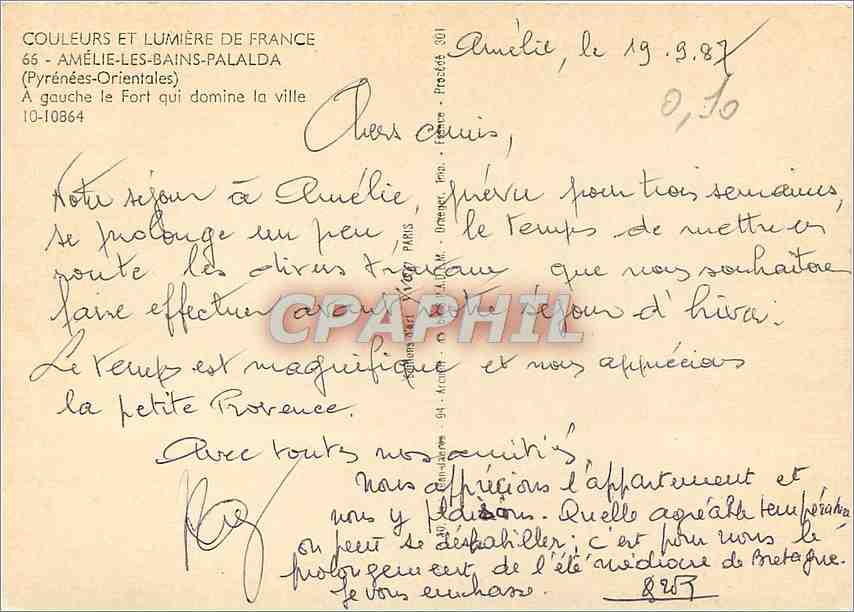 COULEURS ET LUMIÈRE DE FRANCE
66 - AMÉLIE-LES-BAINS-PALALDA
(Pyrénées-Orientales)
A gauche le Fort qui domine la ville
10-10864
Amélie, le 19.9.87
0,50
Chers amis,
Notre séjour à Amélie, prévu pour trois semaines,
se prolonge un peu, le temps de mettre en
route les divers travaux que nous souhaitons
faire effectuer avant notre séjour d'hiver.
Le temps est magnifique et nous apprécions
la petite Provence.
Avec toutes nos amitiés
Nous apprécions l'appartement et
nous y plaisons. Quelle agréable température
on peut se déshabiller; c'est pour nous le
prolongement de l'été médiocre de Bretagne.
Je vous embrasse.
CPAPHIL
Editions d'art YVON PARIS
94 - Arcueil
Imp. - France - Procédé 301